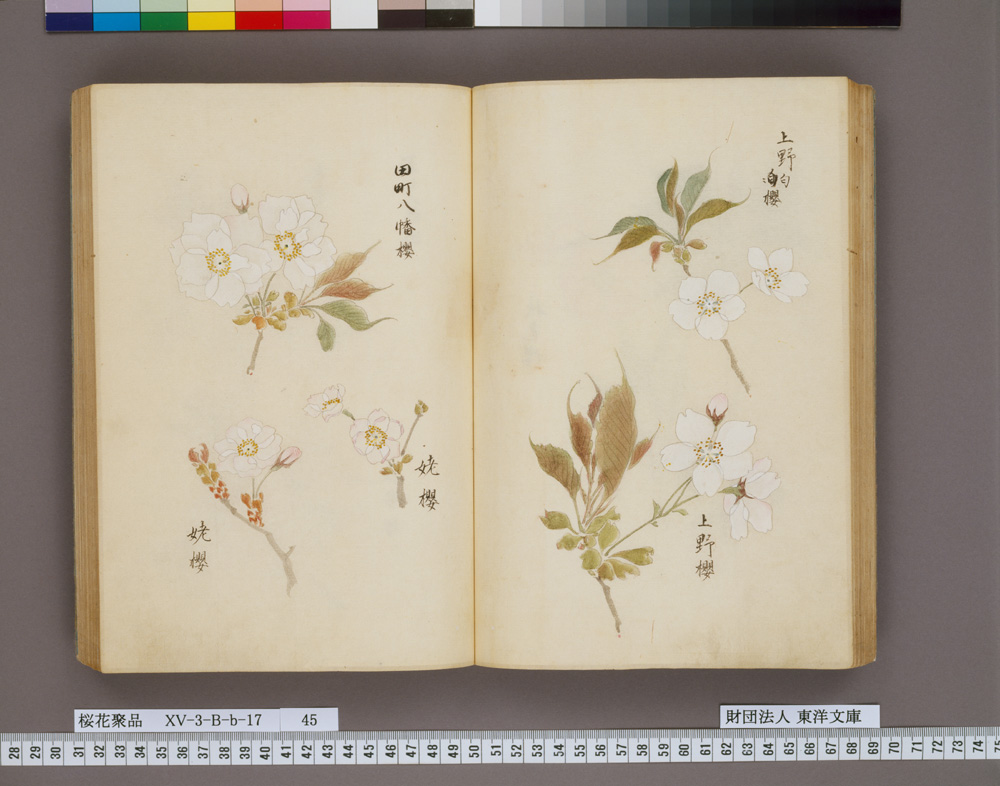 上野白櫻
上野櫻
田町八幡櫻
姥櫻
姥櫻
桜花聚品 XV-3-B-b-17 45
財団法人 東洋文庫
28 29 30 31 32 33 34 35 36 37 38 39 40 41 42 43 44 45 46 47 48 49 50 51 52 53 54 55 56 57 58 59 60 61 62 63 64 65 66 67 68 69 70 71 72 73 74 75